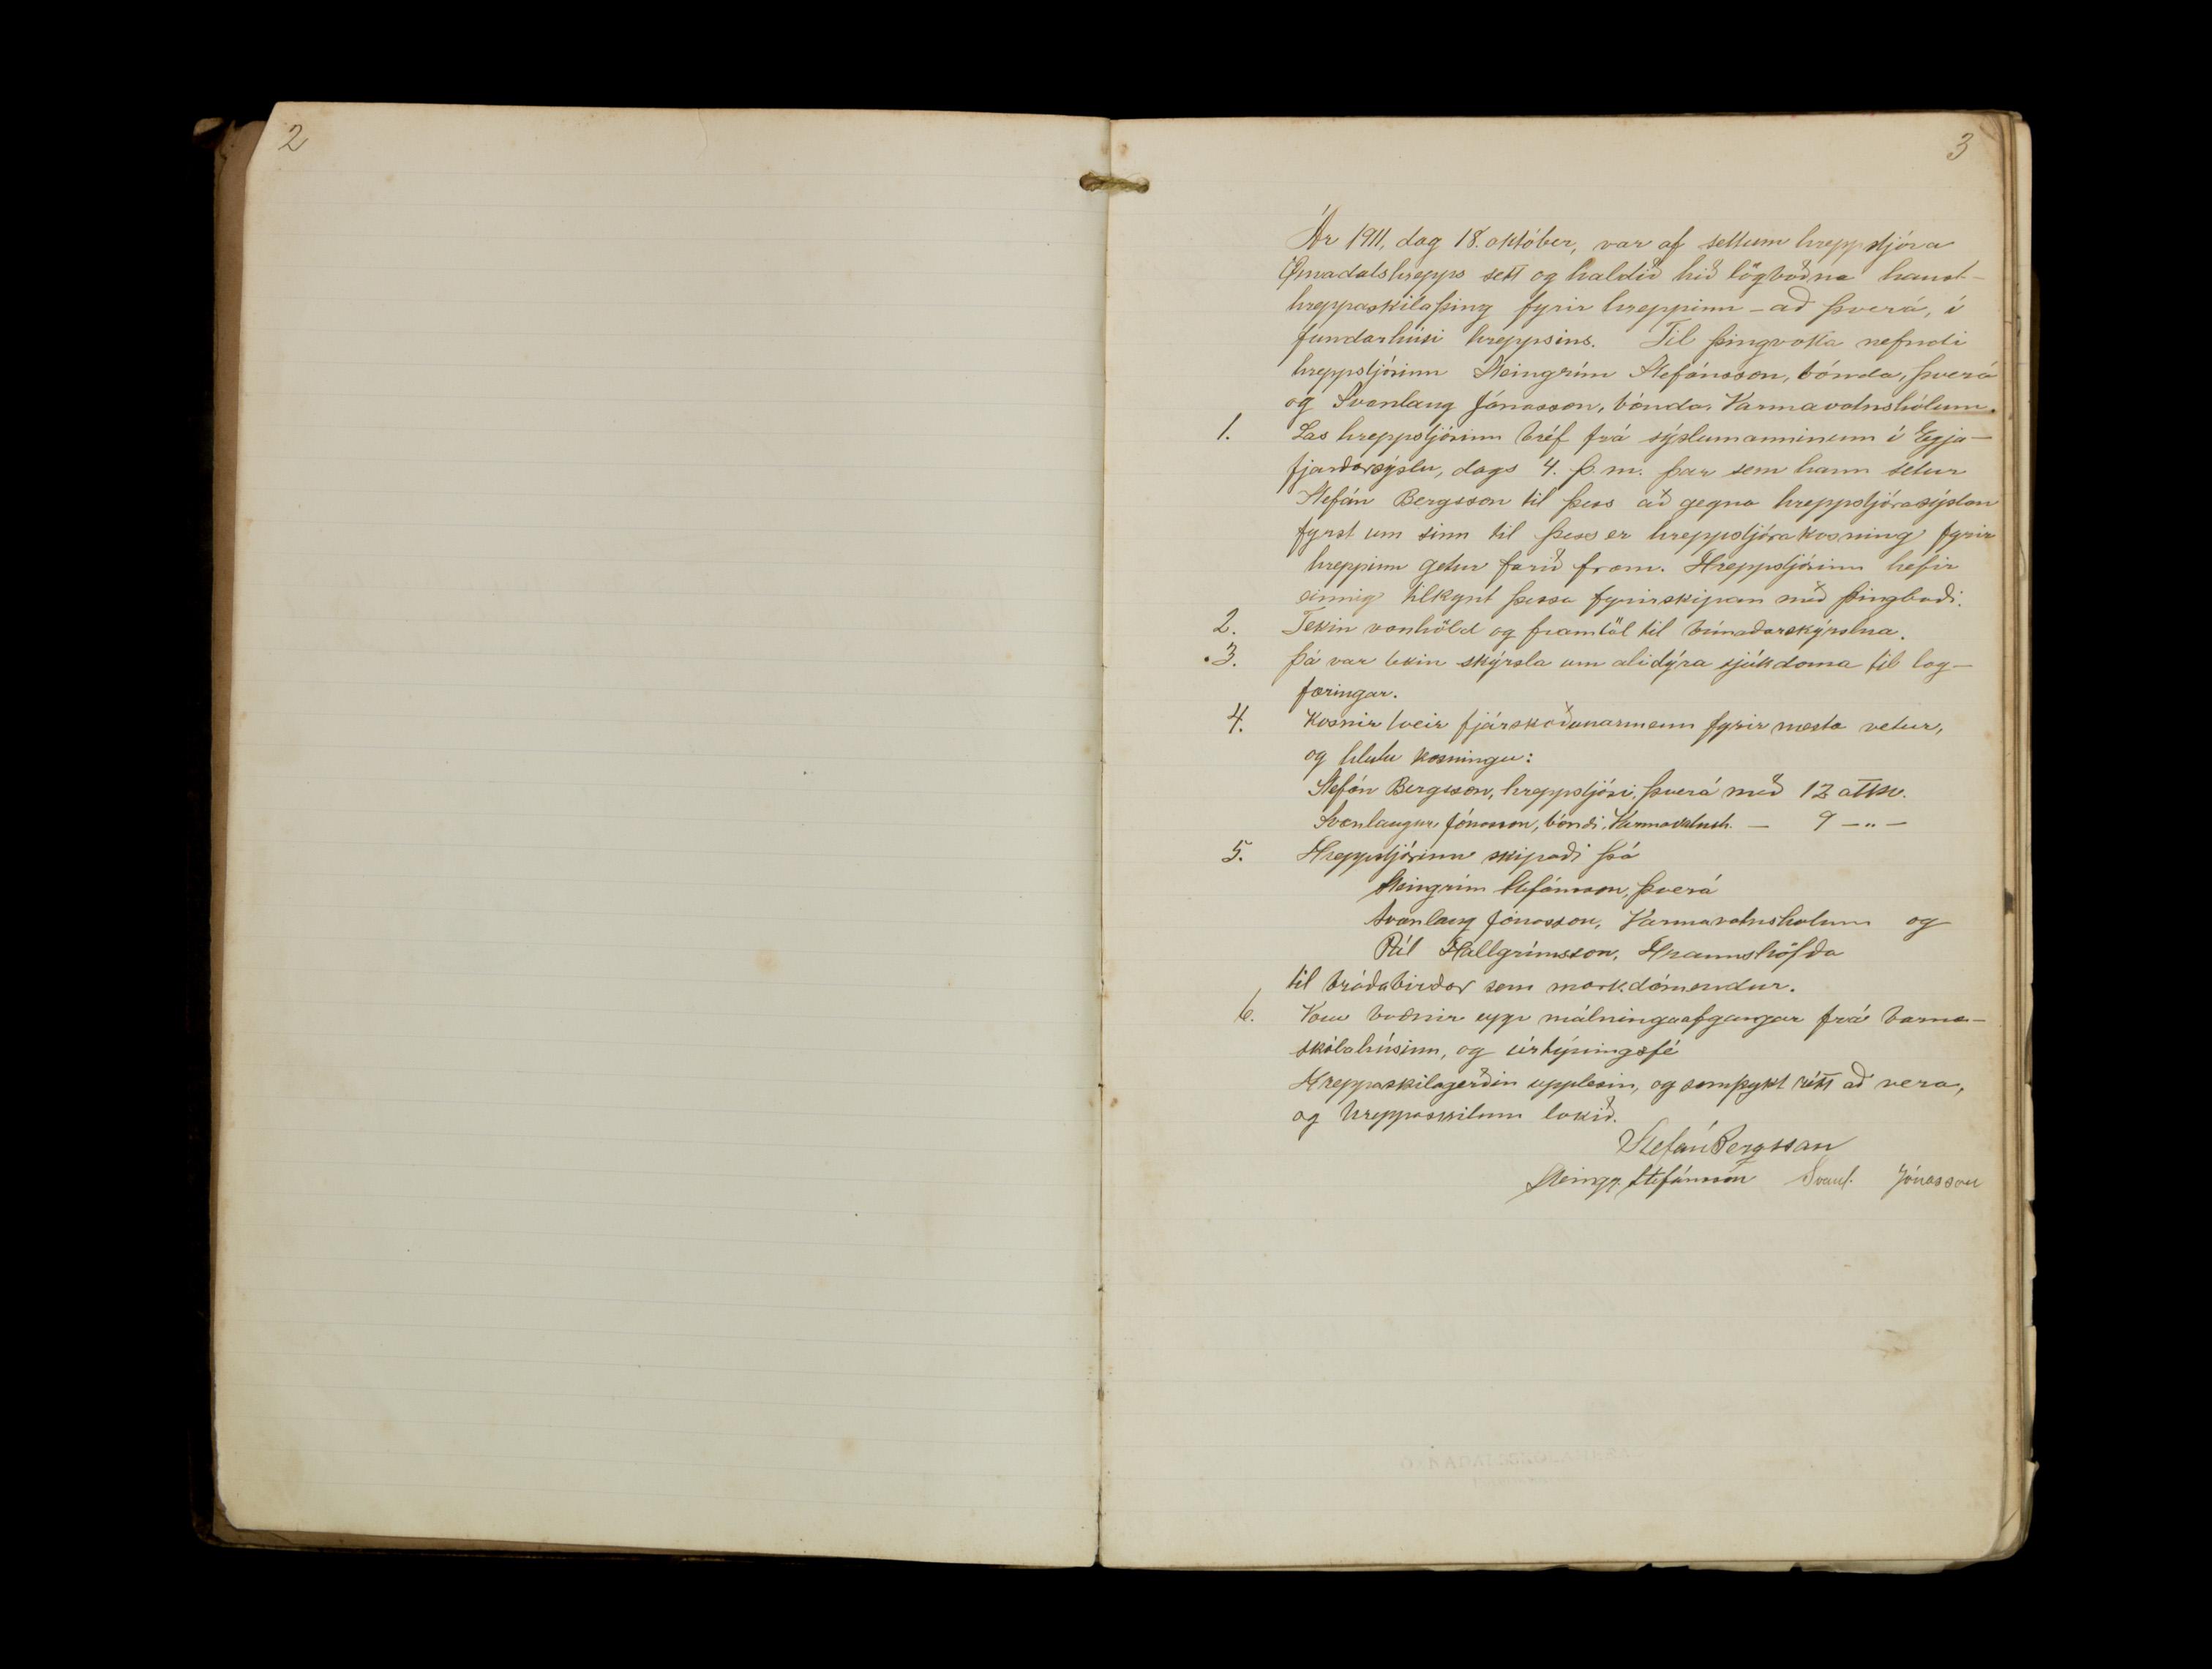 2
3
Ár 1911, dag 18. október, var af settum hreppstjóra
Öxnadalshrepps sett og haldið hið lögboðna haust-
hreppaskilaþing fyrir hreppinn - að Þverá, í
fundarhúsi hreppsins. Til þingvotta nefndi
hreppstjórinn Steingrím Stefánsson, bónda, Þverá
og Svanlaug Jónasson, bónda, Varmavatnshólum.
1. Las hreppstjórinn bréf frá sýslumanninum í Eyja-
fjarðarsýslu, dags 4. þ.m. þar sem hann setur
Stefán Bergsson til þess að gegna hreppstjórasýslan
fyrst um sinn til þess er hreppstjórakosning fyrir
hreppinn getur farið fram. Hreppstjórinn hefir
einnig tilkynt þessa fyrirskipan með þingboði.
2. Tekin vanhöld og framtöl til búnaðarskýrslna.
3. Þá var tekin skýrsla um alidýra sjúkdoma til lag-
færingar.
4. Kosnir tveir fjárskoðunarmenn fyrir næsta vetur,
og hlutu kosningu:
Stefán Bergsson, hreppstjóri, Þverá með 12 atkv.
Svanlaugur Jónasson, bóndi, Varmavatnsh. — 9 —"—
5. Hreppstjórinn skipaði þá
Steingrím Stefánsson, Þverá
Svanlaug Jónasson, Varmavatnsholum og
Pál Hallgrímsson, Hraunshöfða
til bráðabirðar sem markdómendur.
6. Voru boðnir upp málningaafgangar frá barna-
skólahúsinu, og úrtýningsfé
Hreppaskilagerðin upplesin, og samþykt rétt að vera,
og hreppaskilum lokið.
Stefán Bergsson
Steingr. Stefánsson Svanl. Jónasson